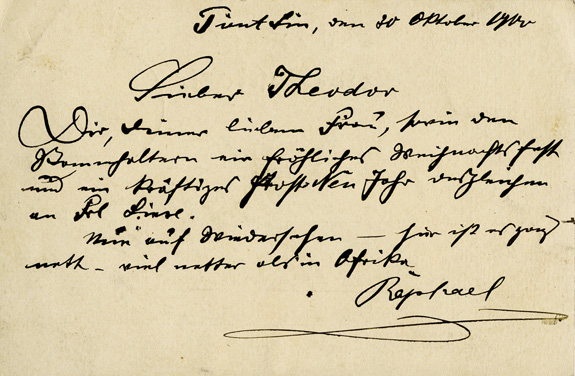 Tientsin, den 30 Oktober 1900
Lieber Theodor
Dir, deiner lieben Frau, sowie den
ein fröhliches Weihnachtsfest
und ein kräftiges Prost Neu Jahr desgleichen
an Frl
Nun auf Wiedersehen – hier ist es ganz
nett – viel netter als in Afrika
Raphael